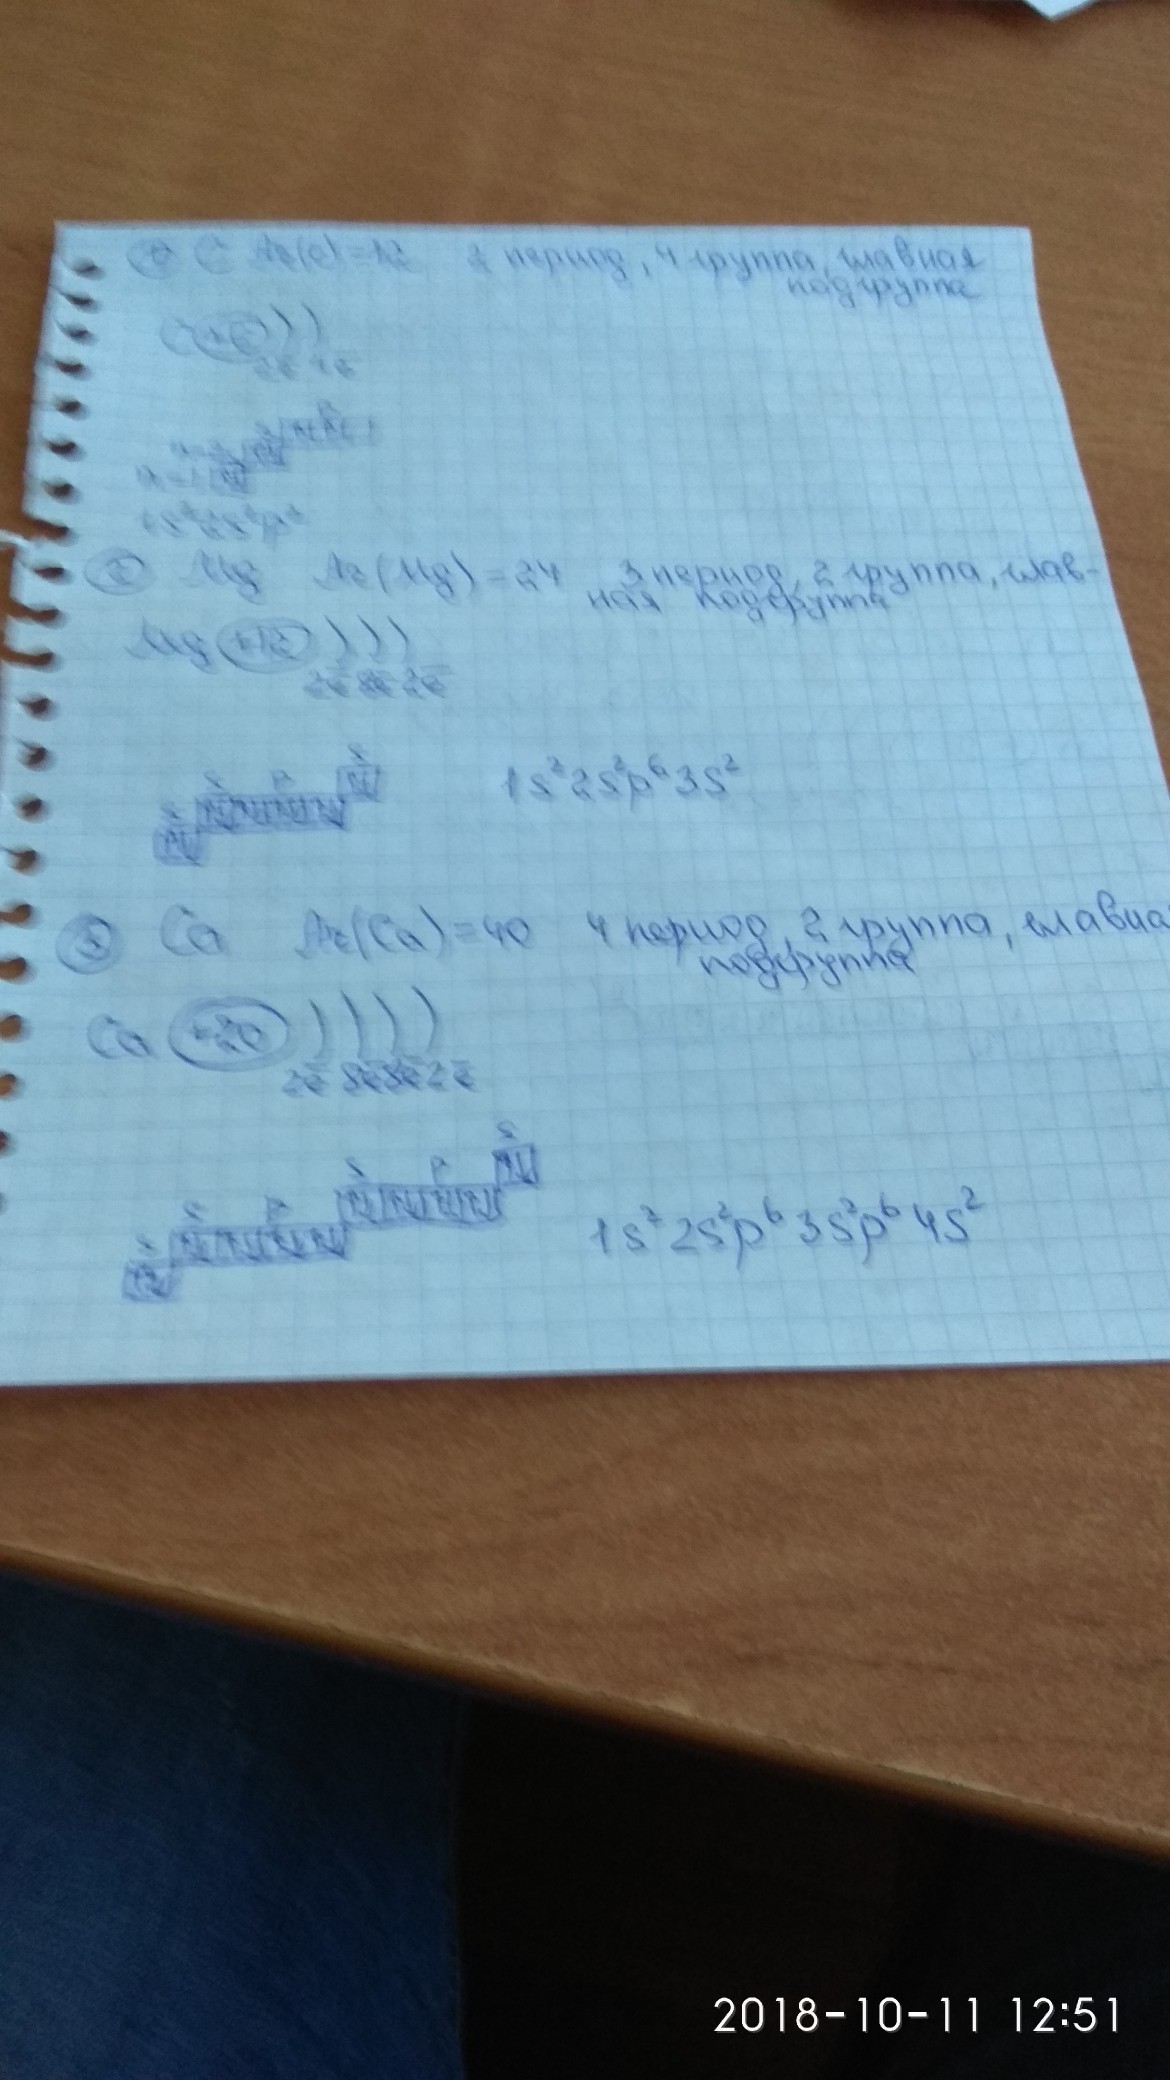 ① C Ar(C)=12 2 период, 4 группа, главная
подгруппа
C +6 ) ) )
2ē 4ē
s p
n=2
n=1
1s²2s²p²
② Mg Ar(Mg)=24 3 период, 2 группа, глав-
ная подгруппа
Mg +12 ) ) )
2ē 8ē 2ē
s
s p
s
1s²2s²p⁶3s²
③ Ca Ar(Ca)=40 4 период, 2 группа, главная
подгруппа
Ca +20 ) ) ) )
2ē 8ē 8ē 2ē
s
s p
s p
s
1s²2s²p⁶3s²p⁶4s²
2018-10-11 12:51